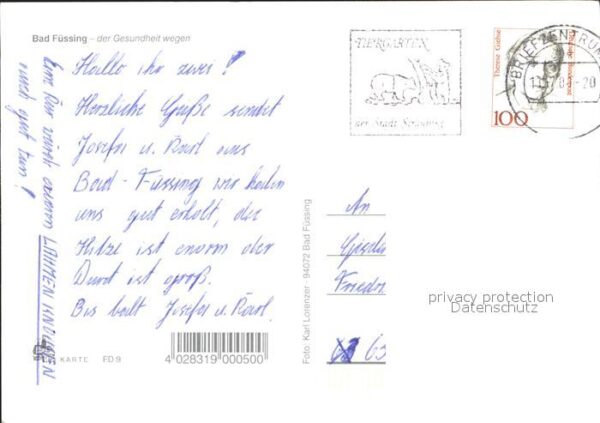 Bad Füssing – der Gesundheit wegen
Hallo ihr zwei!
Herzliche Grüße sendet
Josefa u. Karl aus
Bad-Füssing wir haben
uns gut erholt, die
Hitze ist enorm der
Durst ist groß.
Bis balt Josefa u. Karl.
Eine Kur würde eueren LAHMEN KNOCHEN
auch gut tun!
KARTE FD 9
4 028319 000500
Foto: Karl Lorenzer · 94072 Bad Füssing
TIERGARTEN
der Stadt Straubing
BRIEFZENTRUM
-20
Therese Giehse
Deutsche Bundespost
100
An
Friedr
63
privacy protection
Datenschutz